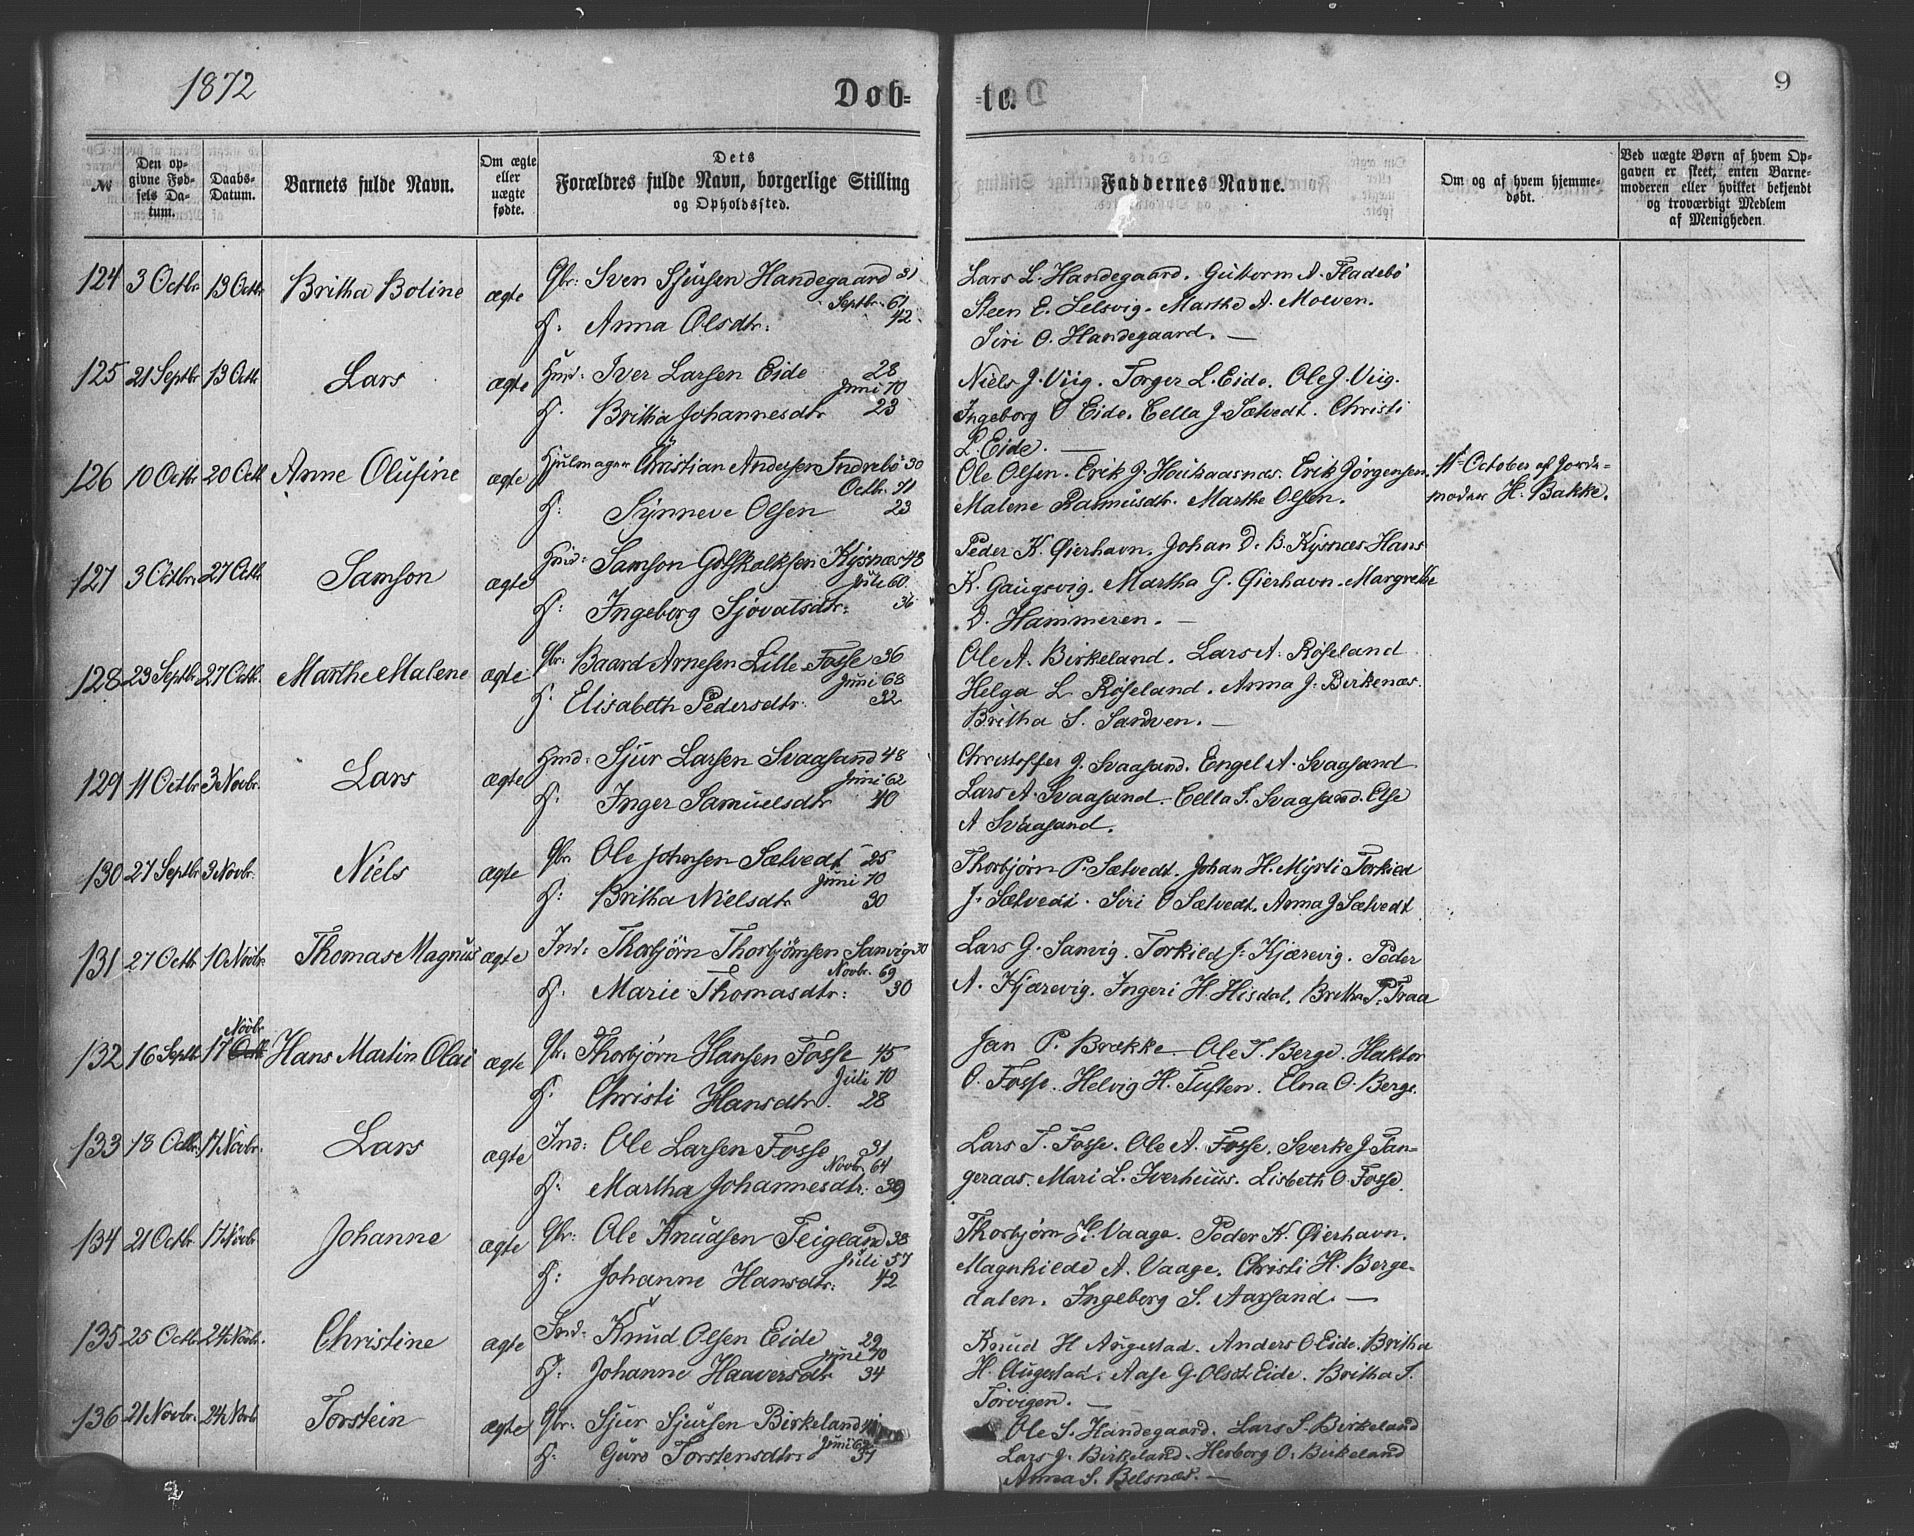 1872
Døb- te.
9
№ | Den opgivne Fødsels Datum. | Daabs-Datum. | Barnets fulde Navn. | Om ægte eller uægte fødte. | Dets Forældres fulde Navn, borgerlige Stilling og Opholdssted. | Faddernes Navne. | Om og af hvem hjemmedøbt. | Ved uægte Børn af hvem Opgaven er skeet, enten Barnemoderen eller hvilket bekjendt og troværdigt Medlem af Menigheden
124 3 Octbr 13 Octbr Britha Boline ægte Gbr: Sven Sjursen Handegaard 31
Septbr. 61
H. Anna Olsdtr: 42
Lars L. Handegaard. Guttorm A. Fladebø
Steen E. Selsvig. Marthe A. Moeven.
Siri O. Handegaard. —
125 21 Septbr 13 Octb Lars ægte Hmd: Iver Larsen Eide 28
Juni 70
H. Britha Johannesdtr 23
Niels J. Viig. Torger L. Eide. Ole J. Viig.
Ingeborg O Eide. Cella J. Sætvedt. Christi
L. Eide. —
126 10 Octbr 20 Octb Anne Olufine ægte Hjulmager Christian Andersen Indrebø 30
Octbr. 71
H: Synneve Olsen 23
Ole Olsen. Erik J. Houkaasnæs. Erik Jørgensen.
Malene Rasmusdtr. Marthe Olsen.
11 October af Jorde-
moder H. Bakke.
127 3 Octbr. 27 Octb. Samson ægte Hmd: Samson Gotskalksen Kysnæs 48
Juli 60
H: Ingeborg Sjovatsdtr: 36
Peder K. Øierhavn. Johan D. B. Kysnæs. Hans
K. Gaugsvig. Martha G. Øierhavn. Margrethe
D. Hammeren. —
128 23 Septbr 27 Octb. Marthe Malene ægte Gbr: Baard Arnesen Lille-Fosse 36
Juni 68
H. Elisabeth Pedersdtr. 32
Ole A. Birkeland. Lars A. Røseland
Helga L. Røseland. Anna J. Birkenæs.
Britha S. Sandven. —
129 11 Octbr 3 Novbr. Lars ægte Hmd: Sjur Larsen Svaasand 48
Juni 62
H: Inger Samuelsdtr 40
Christoffer J. Svaasand. Engel A. Svaasand
Lars A. Svaasand. Cella S. Svaasand. Else
A Svaasand.
130 27 Septbr 3 Novbr. Niels ægte Gbr: Ole Johnsen Sætvedt 25
Juni 70
H: Britha Nielsdtr 30
Thorbjørn P. Sætvedt. Johan H. Myrli Torkied
J. Sætvedt. Siri O Sætvedt. Anna J Sætvedt
131 27 Octbr 10 Novbr. Thomas Magnus ægte Ind: Thorbjørn Thorbjørnsen Sanvig 30
Novbr. 69
H. Marie Thomasdtr: 30
Lars G. Sanvig. Torkild J. Kjærevig. Peder
A. Kjærevig. Ingeri H. Hisdal. Britha T. Traa
Novbr
132 16 Septb 17 Octb. Hans Martin Olai ægte Gbr: Thorbjørn Hansen Fosse 45
Juli 70
H. Christi Hansdtr. 28
Jan P. Brække. Ole T. Berge. Haktor
O. Fosse. Helvig H. Tuften. Elna O. Berge.
133 18 Octbr. 17 Novbr. Lars ægte Ind: Ole Larsen Fosse 31
Novbr. 64
H: Martha Johannesdtr: 39
Lars T. Fosse. Ole A. Fosse. Sverke J Tan-
geraas. Mari L. Iverhuus. Lisbeth O. Fosse.
134 21 Octbr 17 Novbr Johanne ægte Gbr: Ole Knudsen Teigland 38
Juli 57
H: Johanne Hansdtr: 42
Thorbjørn H. Vaage. Peder K. Øierhavn.
Magnhilde A. Vaage. Christi H. Berge-
dalen. Ingeborg S. Aarsand. —
135 25 Octbr 24 Novbr. Christine ægte Ind: Knud Olsen Eide 29
Juni 70
H. Johanne Haaversdtr 34
Knud H Augestad. Anders O Eide. Britha
H. Augestad. Aase G. Olsdt Eide. Britha S.
Torvigen. —
136 21 Novbr. 24 Novb Torstein ægte Gbr: Sjur Sjursen Birkeland
Juni
H: Guro Torstensdtr: 37
Ole S. Handegaard. Lars S. Birkeland
Lars J. Birkeland. Herborg O. Birkeland
Anna S. Belsnæs. —